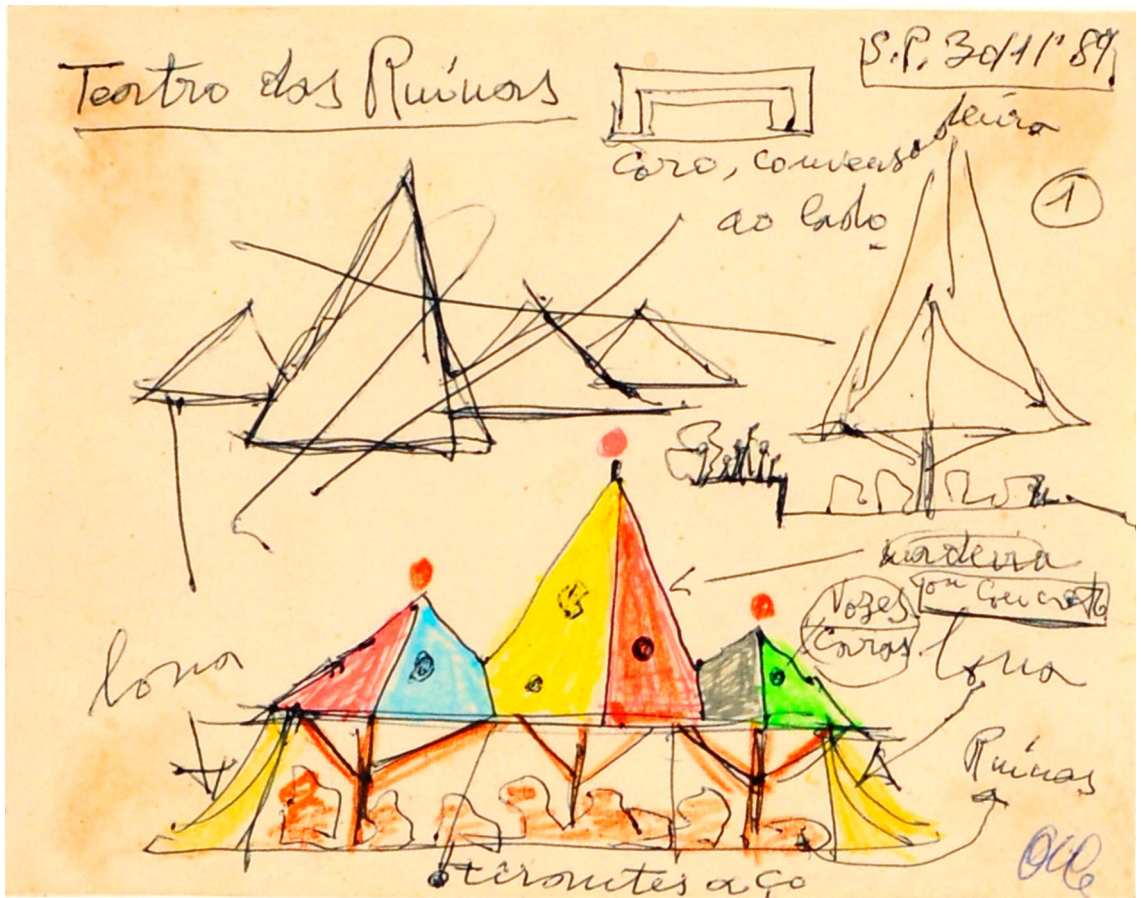 Teatro das Ruínas
S.P. 30/11/89
Coro,
ao lado
1
madeira
ou concreto
Vozes
Coros
lona
lona
Ruínas
tirantes aço